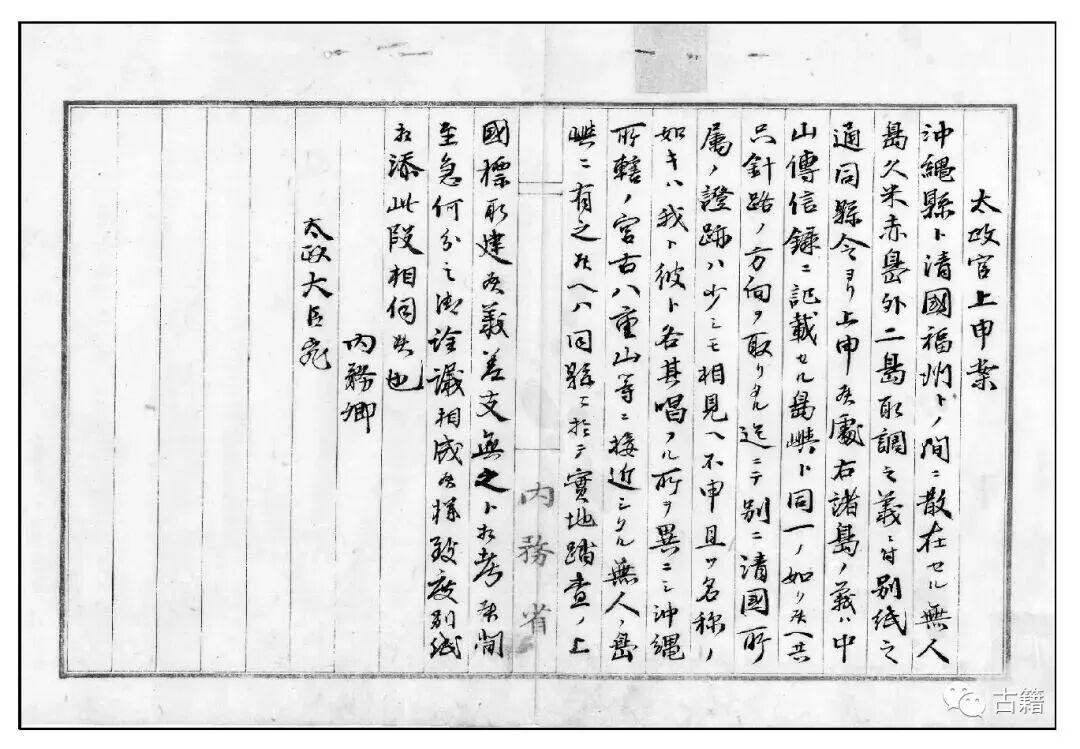 太政官上申案
沖縄縣ト清國福州トノ間ニ散在セル無人
島久米赤島外二島取調之義ニ付別紙之
通同縣令ヨリ上申候處右諸島ノ義ハ中
山傳信録ニ記載セル島嶼ト同一ノ如ク候ヘ共
只針路ノ方向ヲ取リタル迄ニテ別ニ清國所
属ノ證跡ハ少シモ相見ヘ不申且ツ名称ノ
如キハ我ト彼ト各其唱フル所ヲ異ニシ沖縄
所轄ノ宮古八重山等ニ接近シタル無人ノ島
嶼ニ有之候ヘハ同縣ニ於テ實地踏査ノ上
内務省
國標取建候義差支無之ト相考候間
至急何分之御詮議相成候様致度別紙
相添此段相伺候也
内務卿
太政大臣宛
古籍